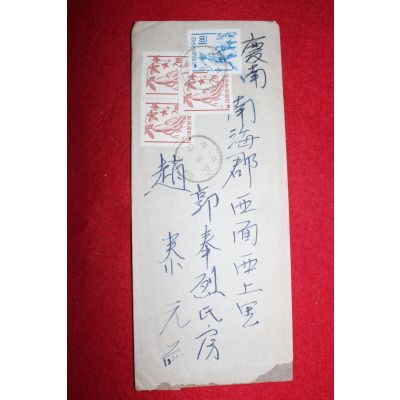 慶南 南海郡西面西上里
郭奉烈氏房
趙泰元